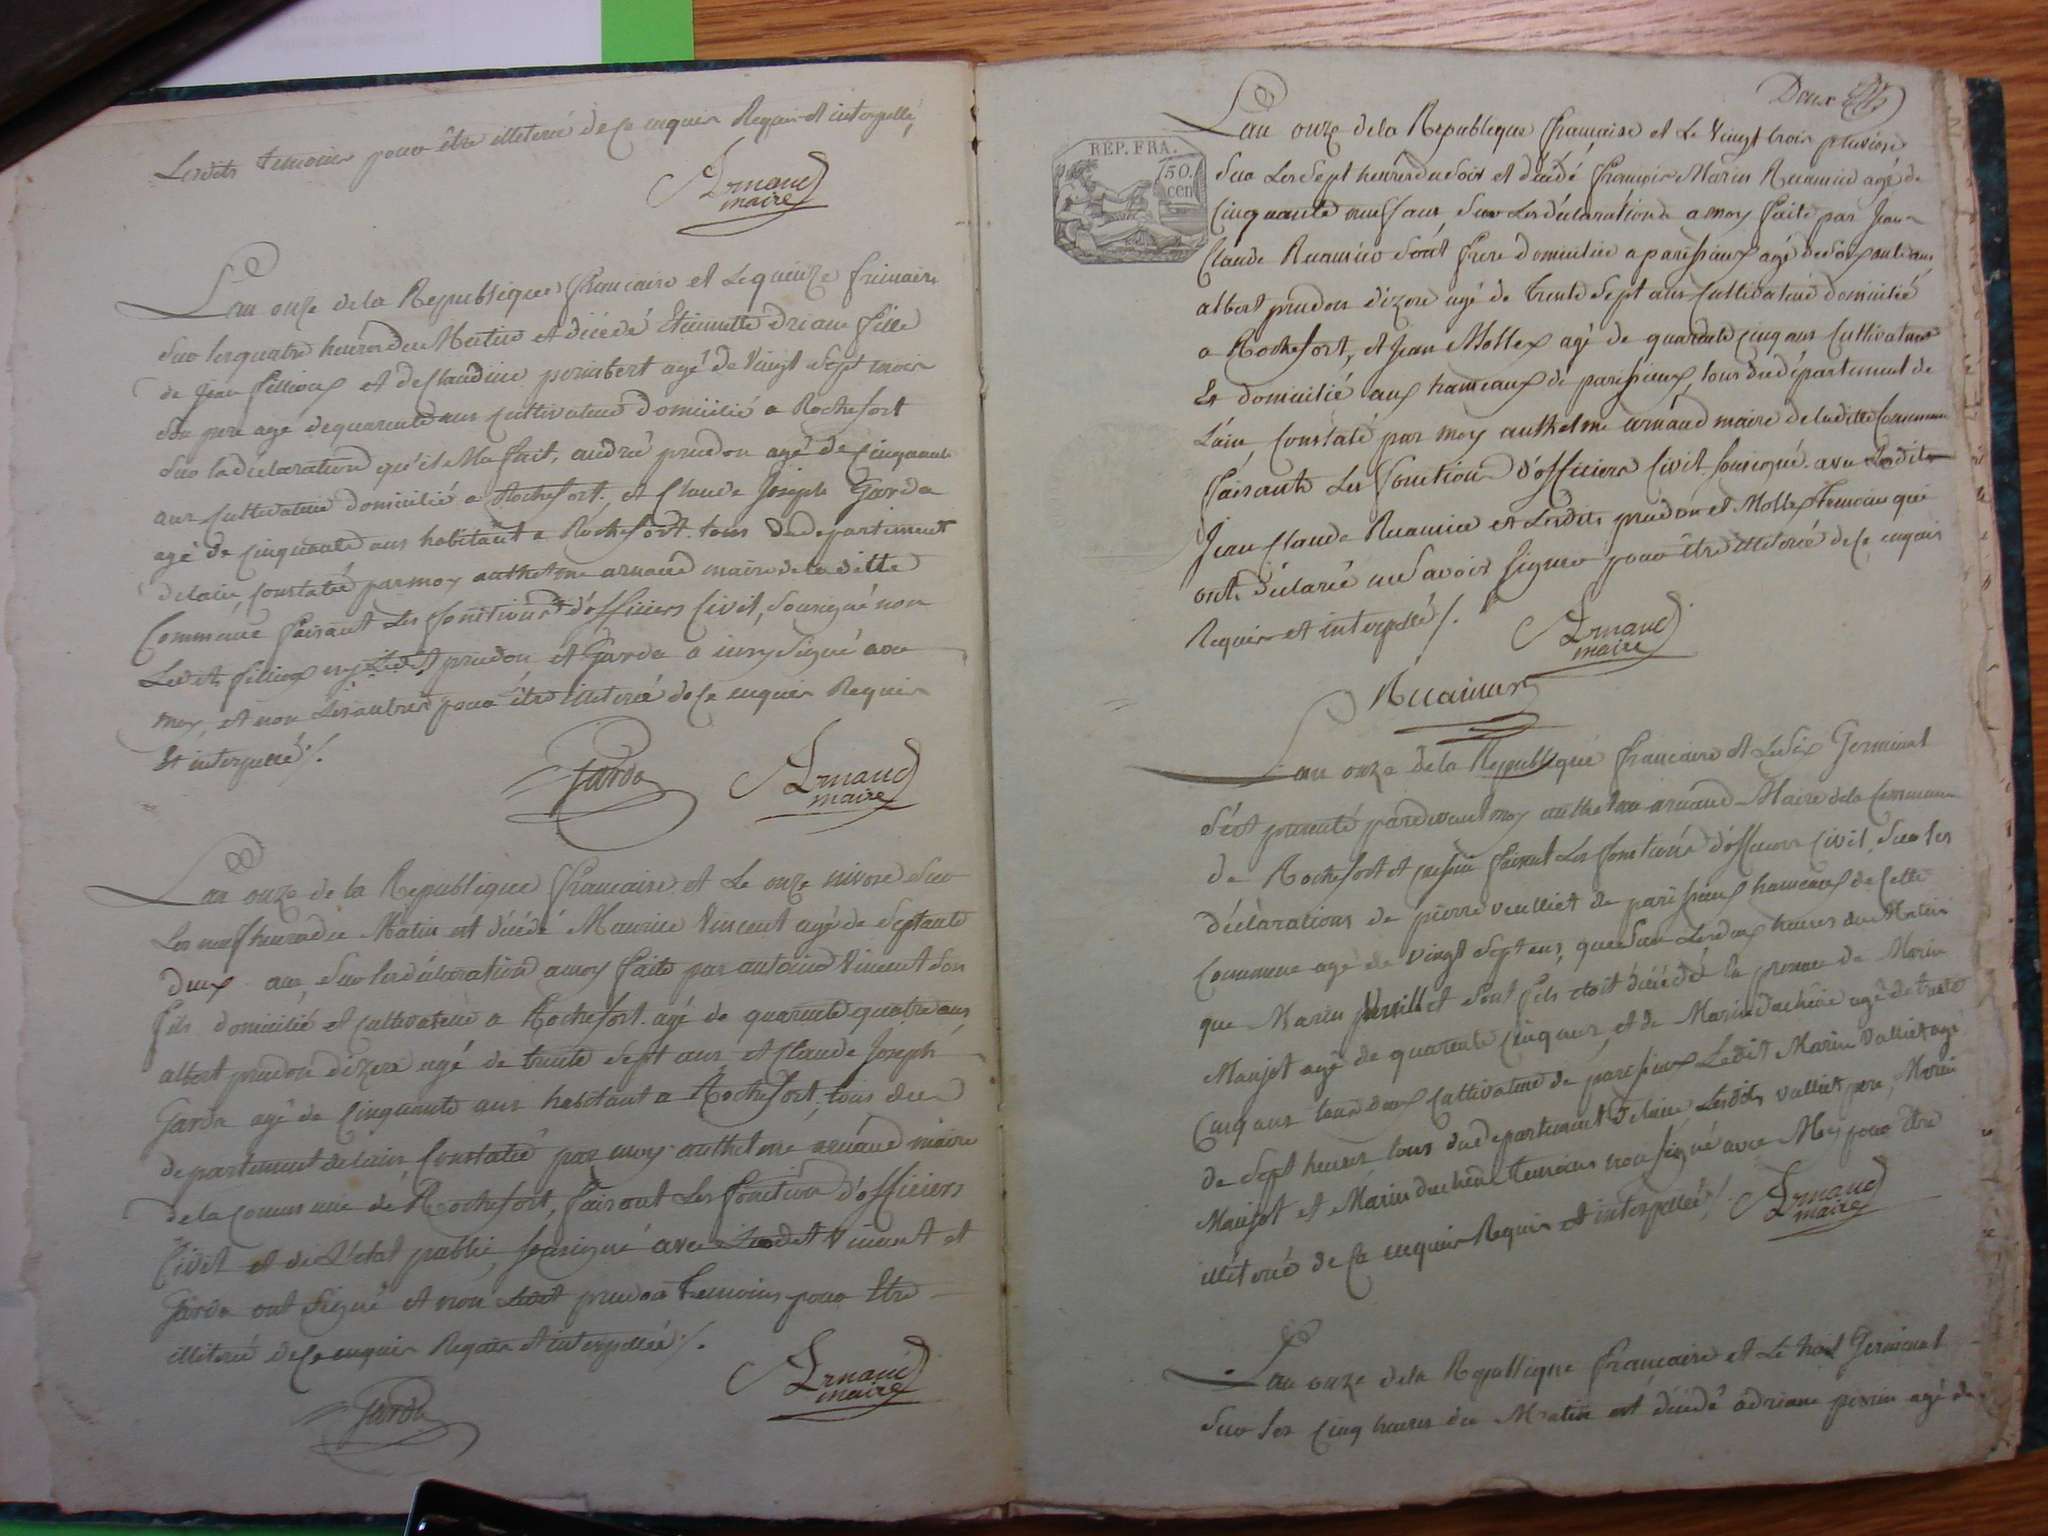 Lesdits temoins pour être illeteré de ce enquis Requis et interpellé,
Arnaud
maire
L'an onze de la Republique francaire et le quinze frimaire
sur les quatre heures du Matin et décédé Etiennette driane fille
de Jean fillioux et de Claudine perimbert agé de vingt sept mois
son pere agé de quarente ans cultivateur domicilié a Rochefort
sur la declaration qu'il Ma fait, andré prudon agé de cinquante
ans cultivateur domicilié a Rochefort, et Claude Joseph Garda
agé de cinquante ans habitant a Rochefort tous du departement
de lain, constaté par moy anthelme arnaud maire de la ditte
Commune faisant les fonctions d'officiers Civil, sousigné non
Ledit fillioux ny Ledit prudon et Garda a signé avec
moy, et non les autres pour être illeteré de ce enquis Requis
et interpellé /.
Garda
Arnaud
maire
L'an onze de la Republique francaire et le onze nivose sur
les neuf heures du Matin est décédé Maurice Vincent agé de septante
deux ans, sur les déclaration a moy faite par antoine Vincent son
fils domicilié et cultivateur a Rochefort agé de quarente quatre ans
albert prudon dizere agé de trente sept ans et Claude Joseph
Garda agé de cinquante ans habitant a Rochefort, tous du
departement de lain, Constaté par moy anthelme arnaud maire
de la commune de Rochefort, faisant les fonction d'officiers
Civil et de L'état public, sousigné avec Ledit Vincent et
Garda ont signé et non Ledit prudon temoins pour être
illeteré de ce enquis Requis et interpellé /.
Garda
Arnaud
maire
Deux
REP. FRA.
50.
cen
L'an onze de la Republique francaise et le vingt trois pluviose
sur les sept heures du soir et décédé francois Marin Reamier agé de
cinquante neuf ans, sur les déclaration a moy faite par Jean
Claude Reamier sont frere domicilié a parissieux agé de soixante ans
albert prudon dizere agé de trente sept ans cultivateur domicilié
a Rochefort, et Jean Mollex agé de quarente cinq ans cultivateur
et domicilié aux hameaux de parissieux, tous du département de
L'ain, Constaté par moy anthelme arnaud maire de laditte Commune
faisante les fonction d'officiers Civil, sousigné avec Ledit
Jean Claude Reamier et Lesdits prudon et Mollex temoins qui
ont déclaré ne savoir signer pour être illeteré de ce enquis
Requis et interpellé /.
Arnaud
maire
L'an onze de la Republique francaire et le six Germinal
s'est presenté pardevant moy anthelme arnaud Maire de la Commune
de Rochefort et faisant les fonctions d'officiers Civil, sur les
déclarations de pierre veulliet de parissieux hameaux de cette
Commune agé de vingt sept ans, que sur les deux heures du Matin
que Marin sont fils etoit décédé en presence de Morin
Maujot agé de quarente cinq ans, et de Marin duchêne agé de trente
cinq ans tous deux cultivateur de parissieux Ledit Marin valliet agé
de sept heures tous du departement de lain Lesdits valliet pere, Morin
Maujot et Marin duchêne temoins non signé avec Moy pour être
illeteré de ce enquis Requis et interpellé /.
Arnaud
maire
L'an onze de la Republique francaire et le huit Germinal
sur les cinq heures du Matin est décédé adriane perrin agé de